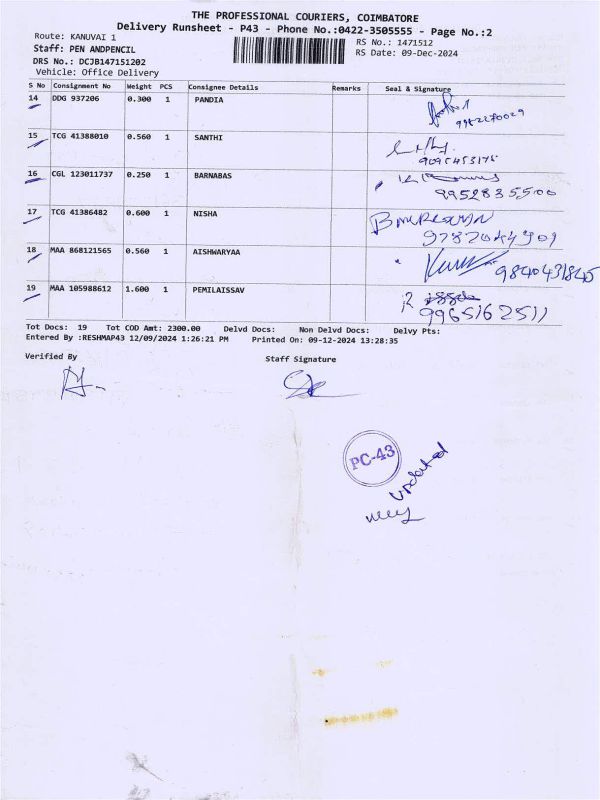 THE PROFESSIONAL COURIERS, COIMBATORE
Delivery Runsheet - P43 - Phone No.:0422-3505555 - Page No.:2
Route: KANUVAI 1
RS No.: 1471512
Staff: PEN ANDPENCIL
RS Date: 09-Dec-2024
DRS No.: DCJB147151202
Vehicle: Office Delivery
S No Consignment No Weight PCS Consignee Details Remarks Seal & Signature
14 DDG 937206 0.300 1 PANDIA
15 TCG 41388010 0.560 1 SANTHI
16 CGL 123011737 0.250 1 BARNABAS
9952835500
17 TCG 41386482 0.600 1 NISHA
9787044901
18 MAA 868121565 0.560 1 AISHWARYAA
9840431845
19 MAA 105988612 1.600 1 PEMILAISSAV
9965162511
Tot Docs: 19 Tot COD Amt: 2300.00 Delvd Docs: Non Delvd Docs: Delvy Pts:
Entered By :RESHMAP43 12/09/2024 1:26:21 PM Printed On: 09-12-2024 13:28:35
Verified By Staff Signature
PC-43
updated